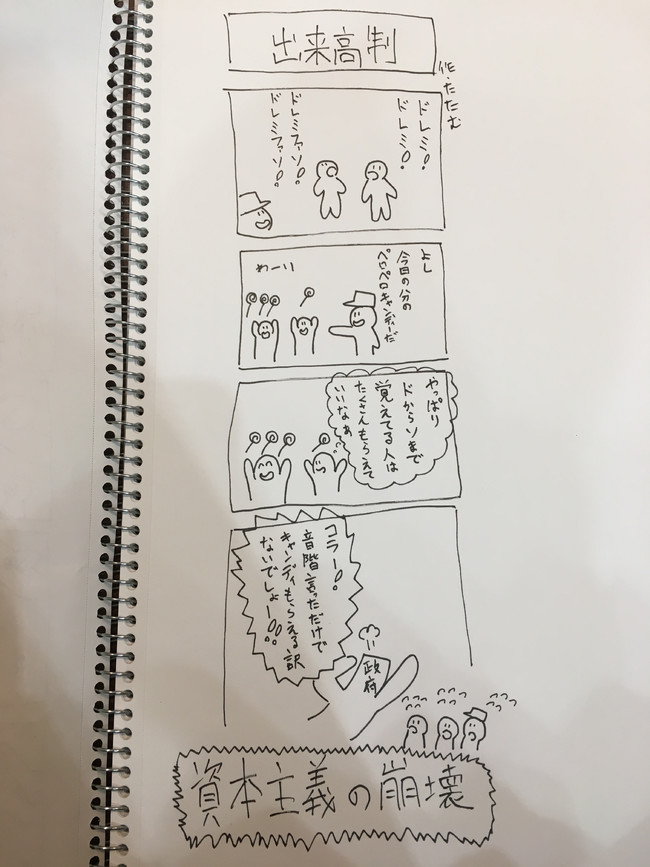 出来高制
作・たたむ
ドレミ!
ドレミ!
ドレミファソ!
ドレミファソ!
よし
今日の分の
ペロペロキャンディーだ
わーい
やっぱり
ドからソまで
覚えてる人は
たくさんもらえて
いいなぁ
コラー!
音階言っただけで
キャンディもらえる訳
ないでしょー!!
政府
資本主義の崩壊